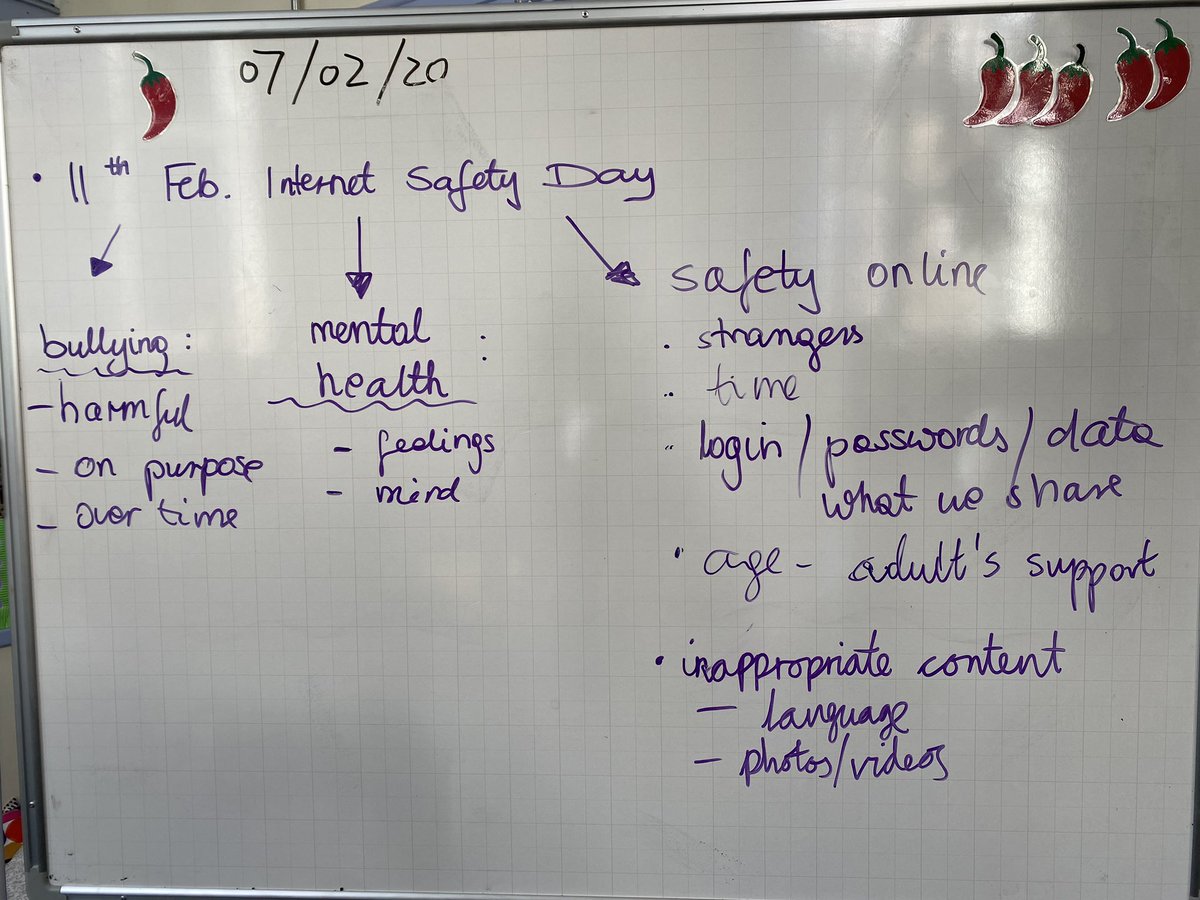 07/02/20
• 11th Feb. Internet Safety Day
bullying:
- harmful
- on purpose
- over time
mental
health :
- feelings
- mind
safety online
• strangers
• time
• login / passwords / data
what we share
• age - adult's support
• inappropriate content
- language
- photos/videos